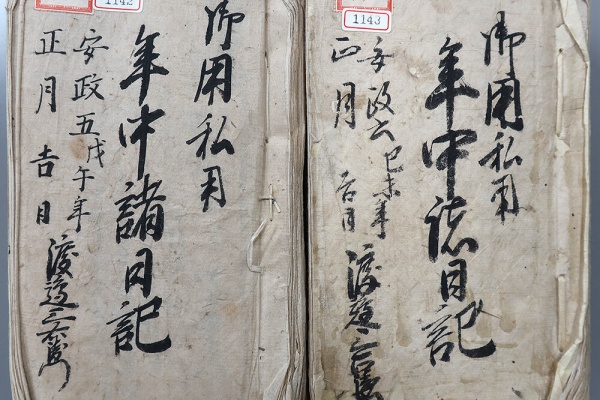 1143
御用私用
年中諸日記
安政六己未年
正月吉日
渡邉三右衛
1142
御用私用
年中諸日記
安政五戊午年
正月吉日
渡邉三右衛門